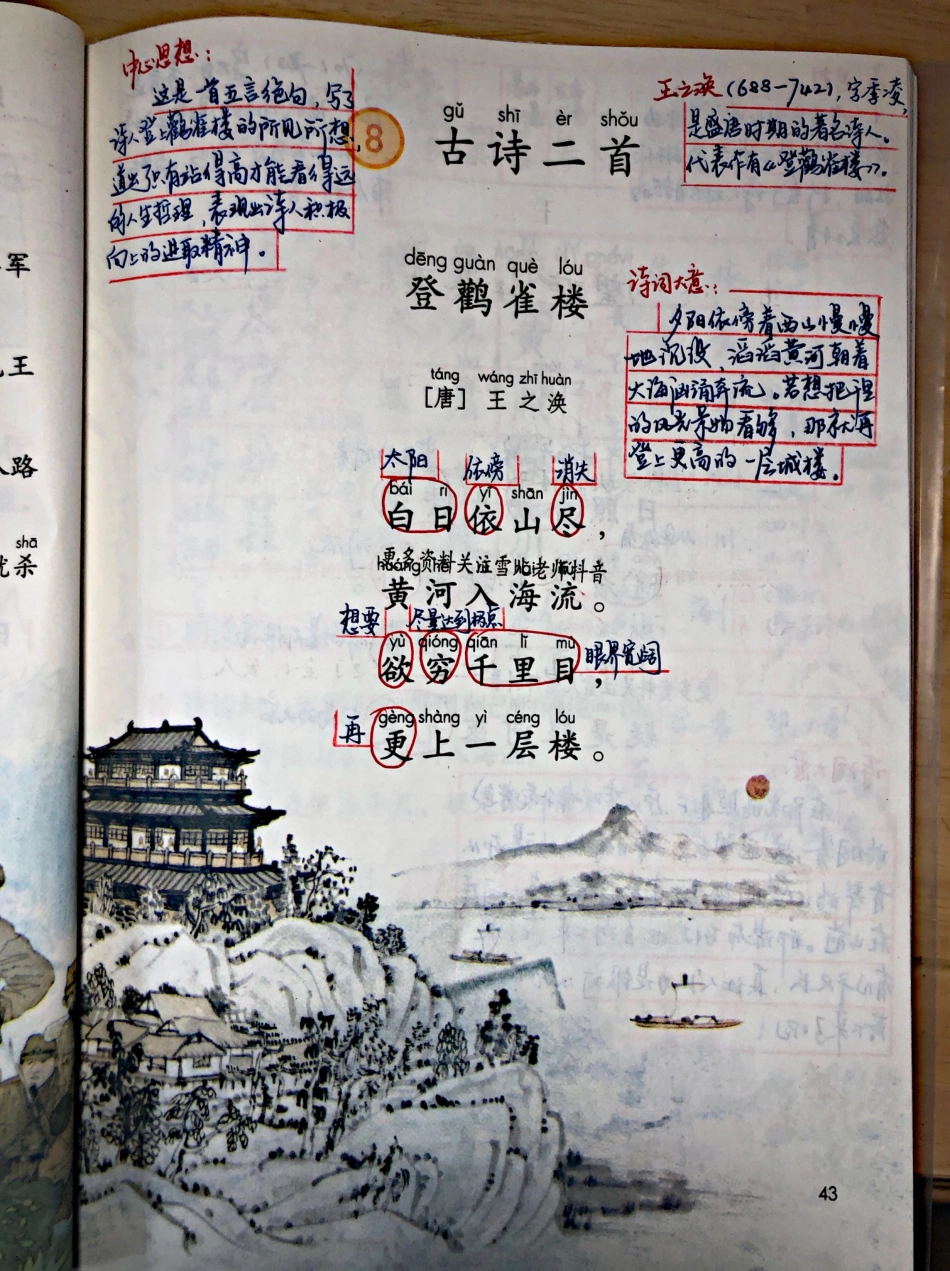 中心思想：
这是一首五言绝句，写了
诗人登上鹳雀楼的所见所想，
道出了只有站得高才能看得远
的人生哲理，表现出诗人积极
向上的进取精神。
8
gǔ shī èr shǒu
古诗二首
王之涣（688-742），字季凌，
是盛唐时期的著名诗人。
代表作有《登鹳雀楼》。
dēng guàn què lóu
登鹳雀楼
táng wáng zhī huàn
［唐］王之涣
诗词大意：
夕阳依傍着西山慢慢
地沉没，滔滔黄河朝着
大海汹涌奔流。若想把
的风光景物看够，那就再
登上更高的一层城楼。
太阳 依傍 消失
bái rì yī shān jìn
白日依山尽，
更多资料关注雪儿老师抖音
黄河入海流。
想要 尽量达到极点
yù qióng qiān lǐ mù
欲穷千里目， 眼界宽阔
gèng shàng yì céng lóu
再 更上一层楼。
军
王
路
shā
杀
43